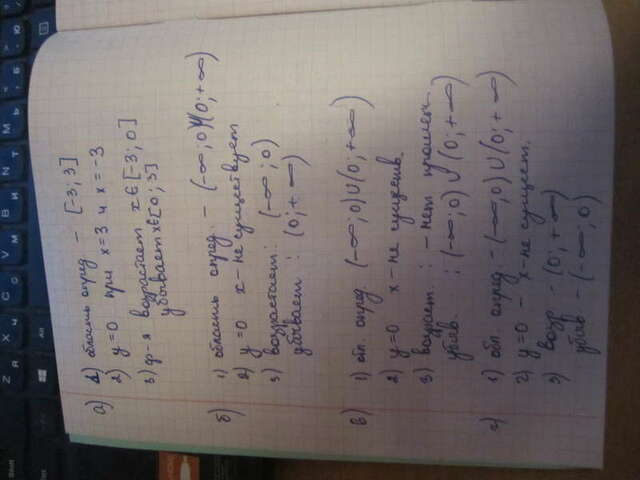 а) 1) область опред - [-3; 3]
2) y=0 при x=3 и x=-3
3) ф-я возрастает x∈[-3; 0]
убывает x∈[0; 3]
б) 1) область опред. - (-∞; 0)U(0; +∞)
2) y=0 x - не существует
3) возрастает: (-∞; 0)
убывает: (0; +∞)
в) 1) обл. опред. (-∞; 0)U(0; +∞)
2) y=0 x - не существ.
3) возраст. : - нет промеж.
убыв. : (-∞; 0) U (0; +∞)
г) 1) обл. опред - (-∞; 0) U (0; +∞)
2) y=0 - x - не сущест.
3) возр - (0; +∞)
убыв - (-∞; 0)